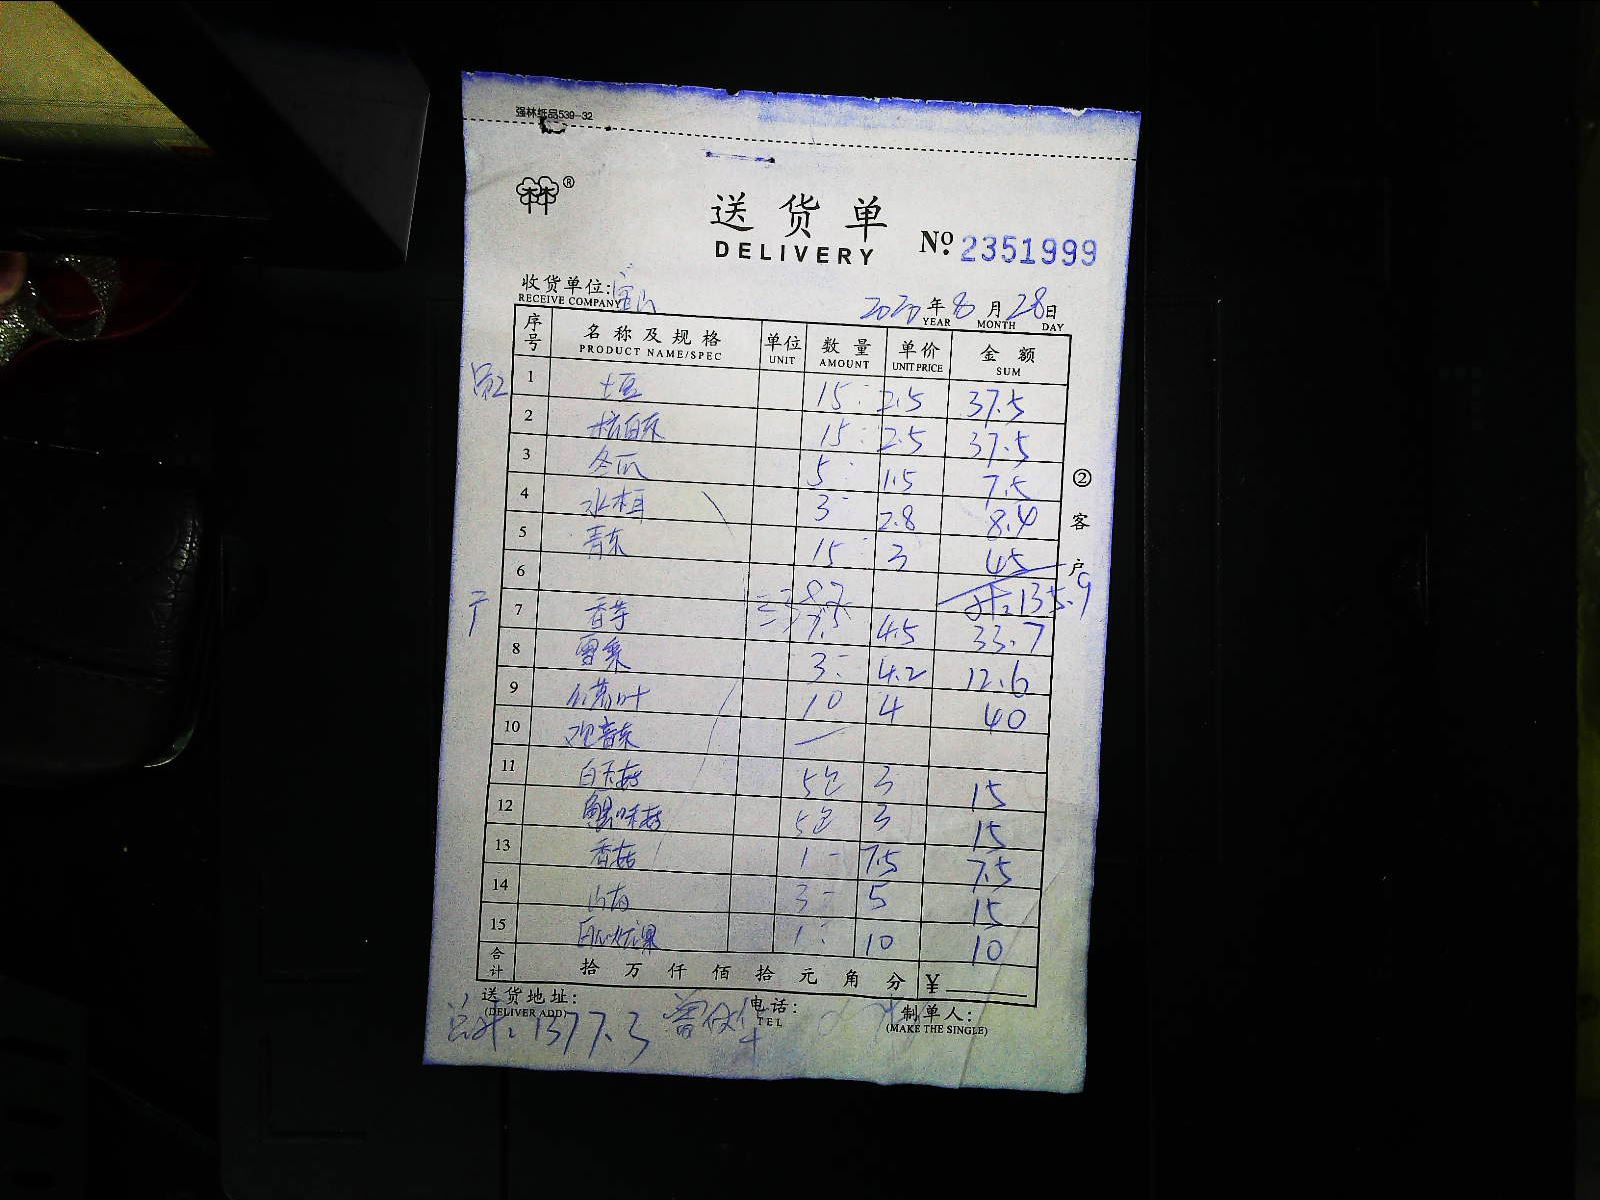 强林纸品539-32
林®
送货单
DELIVERY
№ 2351999
收货单位: 宝山
RECEIVE COMPANY
2020年8月28日
YEAR MONTH DAY
序号 名称及规格 单位 数量 单价 金额
PRODUCT NAME/SPEC UNIT AMOUNT UNIT PRICE SUM
1 土豆 15 2.5 37.5
2 15 2.5 37.5
3 冬瓜 5 1.5 7.5
4 3 2.8 8.4
5 青东 15 3 45
6 135.9
7 香芋 7.5 4.5 33.7
8 3 4.2 12.6
9 叶 10 4 40
10 观音
11 白玉菇 5包 3 15
12 蟹味菇 5包 3 15
13 香菇 1 7.5 7.5
14 3 5 15
15 1 10 10
合计 拾万仟佰拾元角分 ¥
② 客户
送货地址: 电话: 制单人:
(DELIVER ADD) TEL (MAKE THE SINGLE)
1377.3